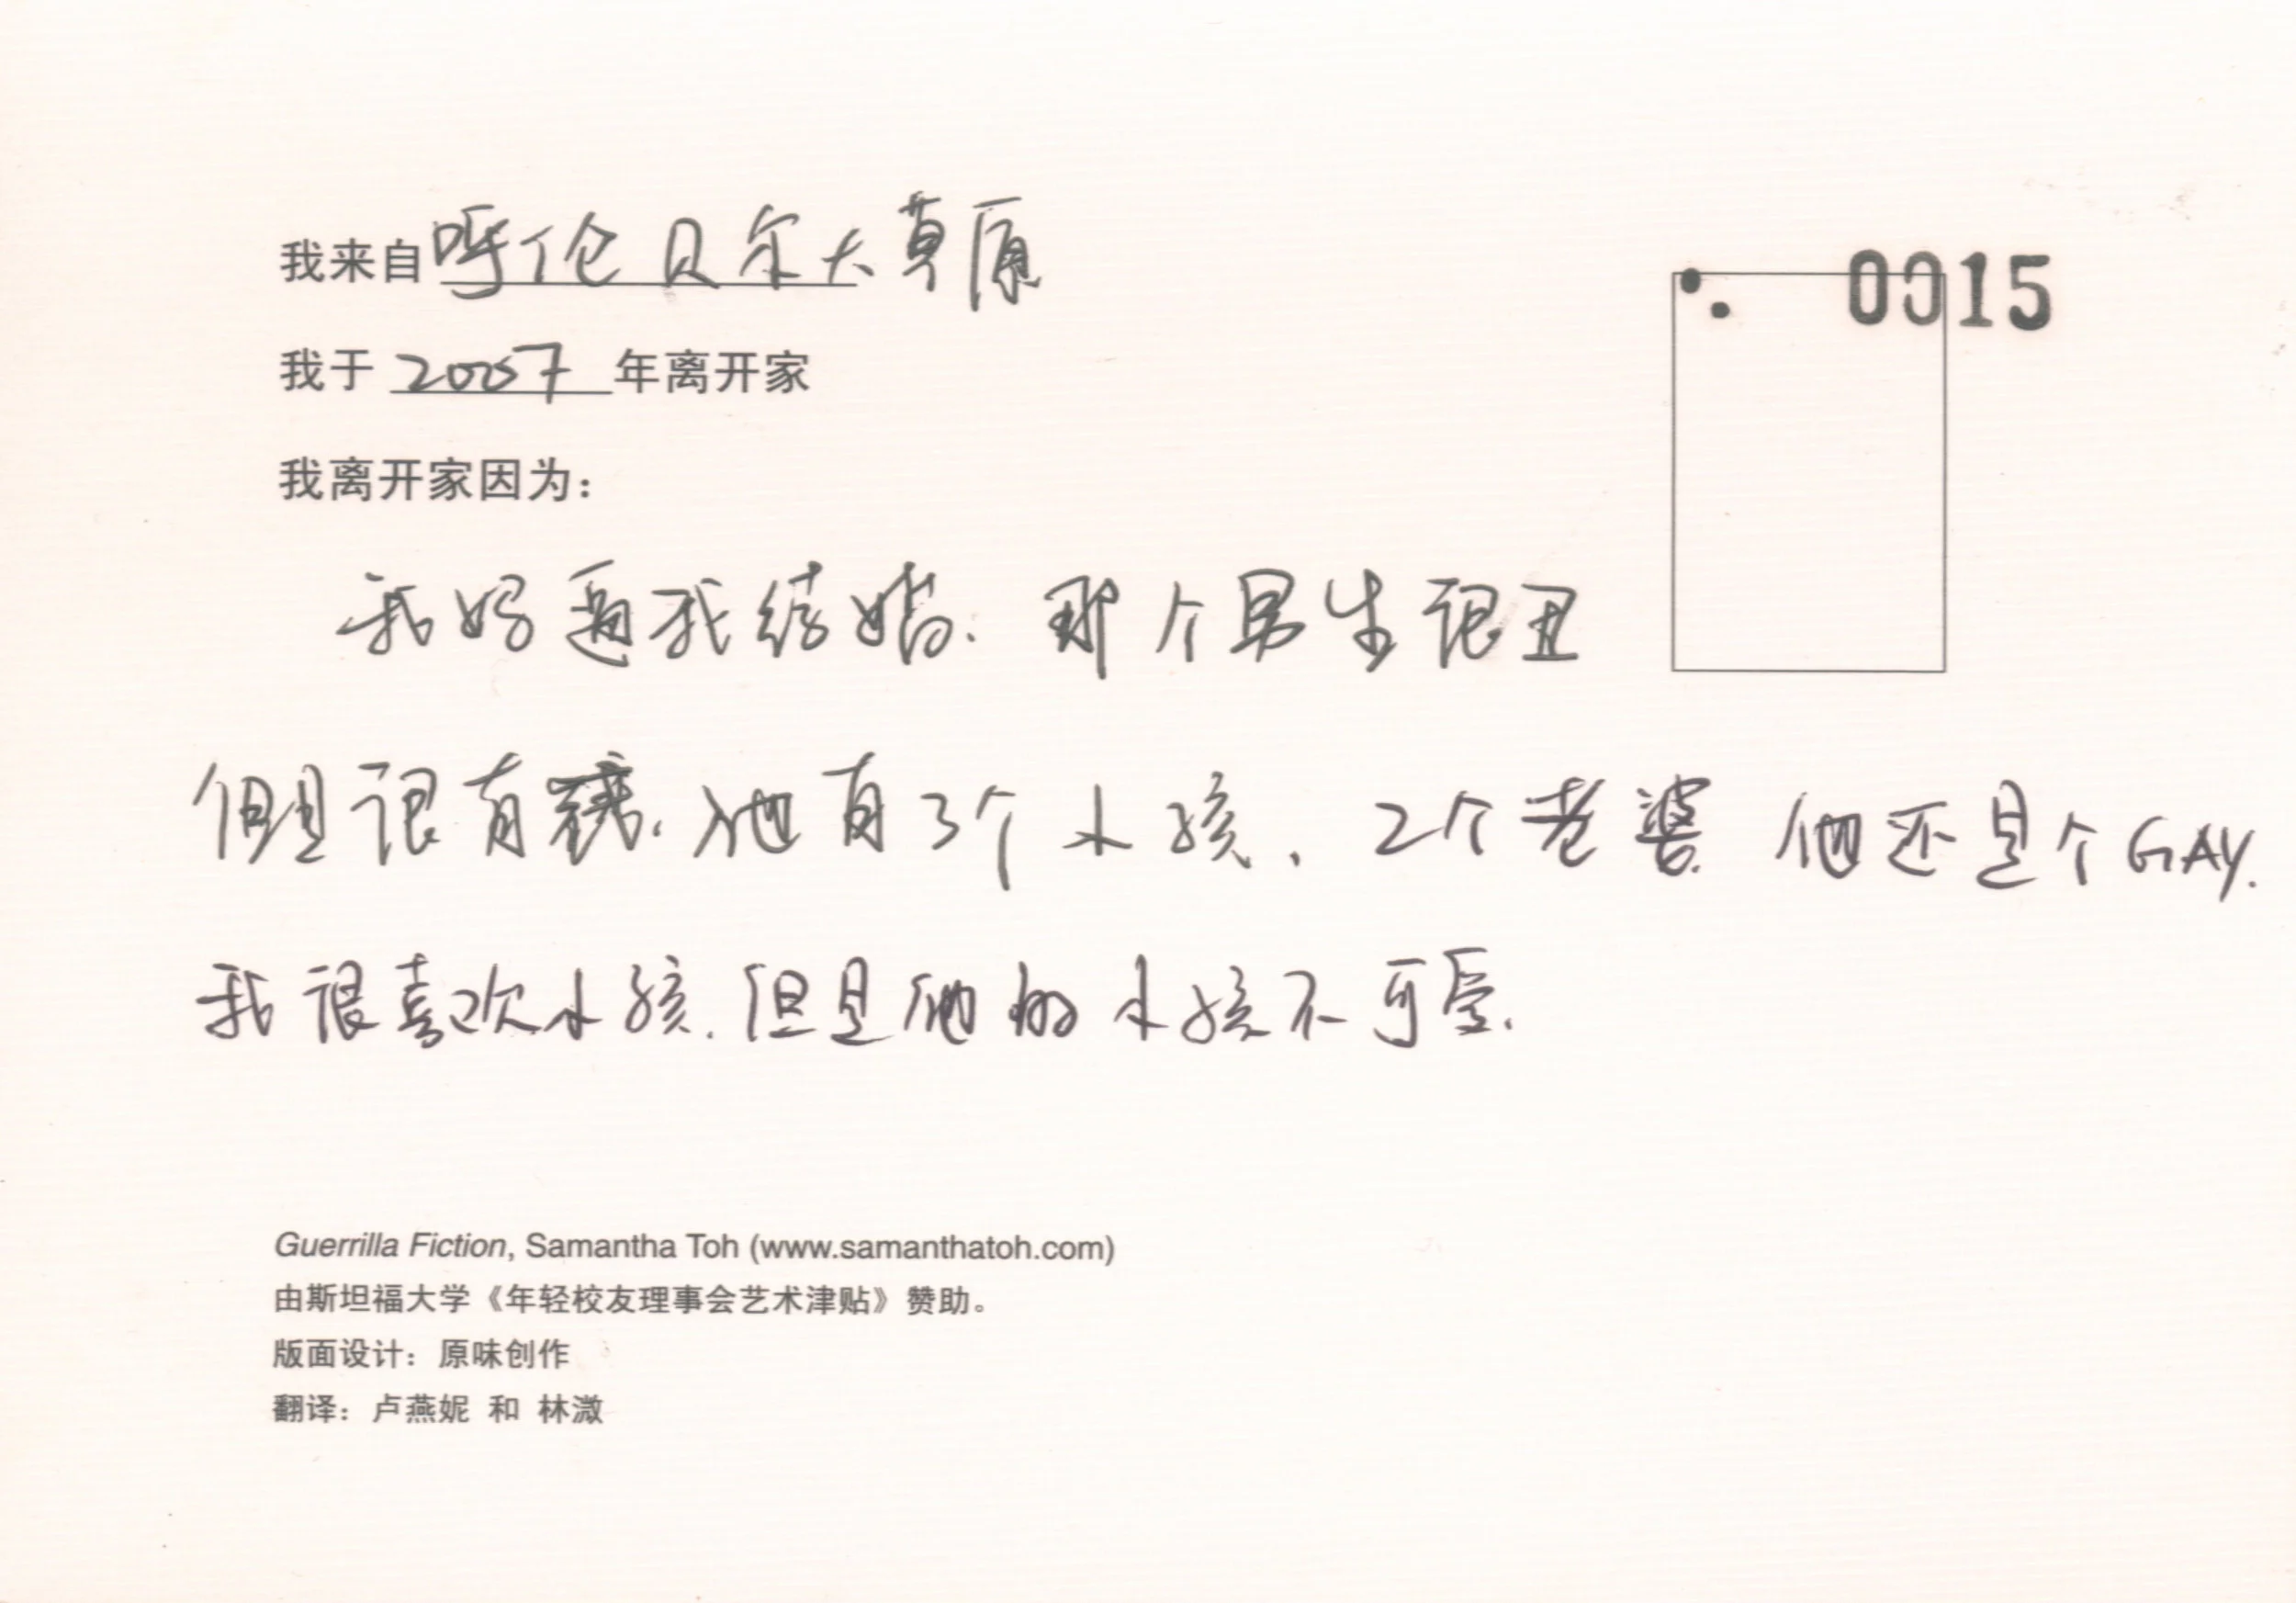 我来自 呼伦贝尔大草原
0015
我于 2007 年离开家
我离开家因为：
我妈逼我结婚. 那个男生很丑
但是很有钱. 他有3个小孩. 2个老婆 他还是个GAY.
我很喜欢小孩. 但是他的小孩不可爱.
Guerrilla Fiction, Samantha Toh (www.samanthatoh.com)
由斯坦福大学《年轻校友理事会艺术津贴》赞助。
版面设计：原味创作
翻译：卢燕妮 和 林溦